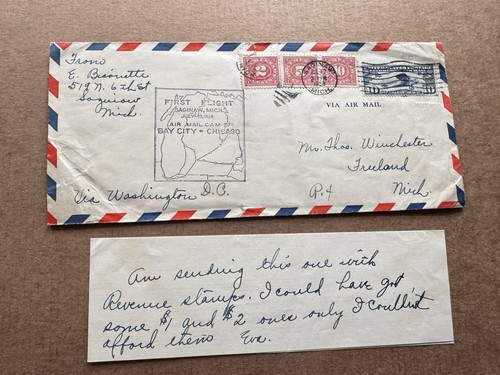 From
E. Bisonette
519 N. 6th St
Saginaw
Mich.
FIRST FLIGHT
SAGINAW, MICH.
AIR MAIL CAM
BAY CITY - CHICAGO
Via Washington D.C.
2
10
SAGINAW
MICH.
10
VIA AIR MAIL
Mr. Thos. Winchester
Freeland
R.4 Mich.
Am sending this one with
Revenue stamps. I could have got
some $1 and $2 ones only I couldn't
afford them Eva.